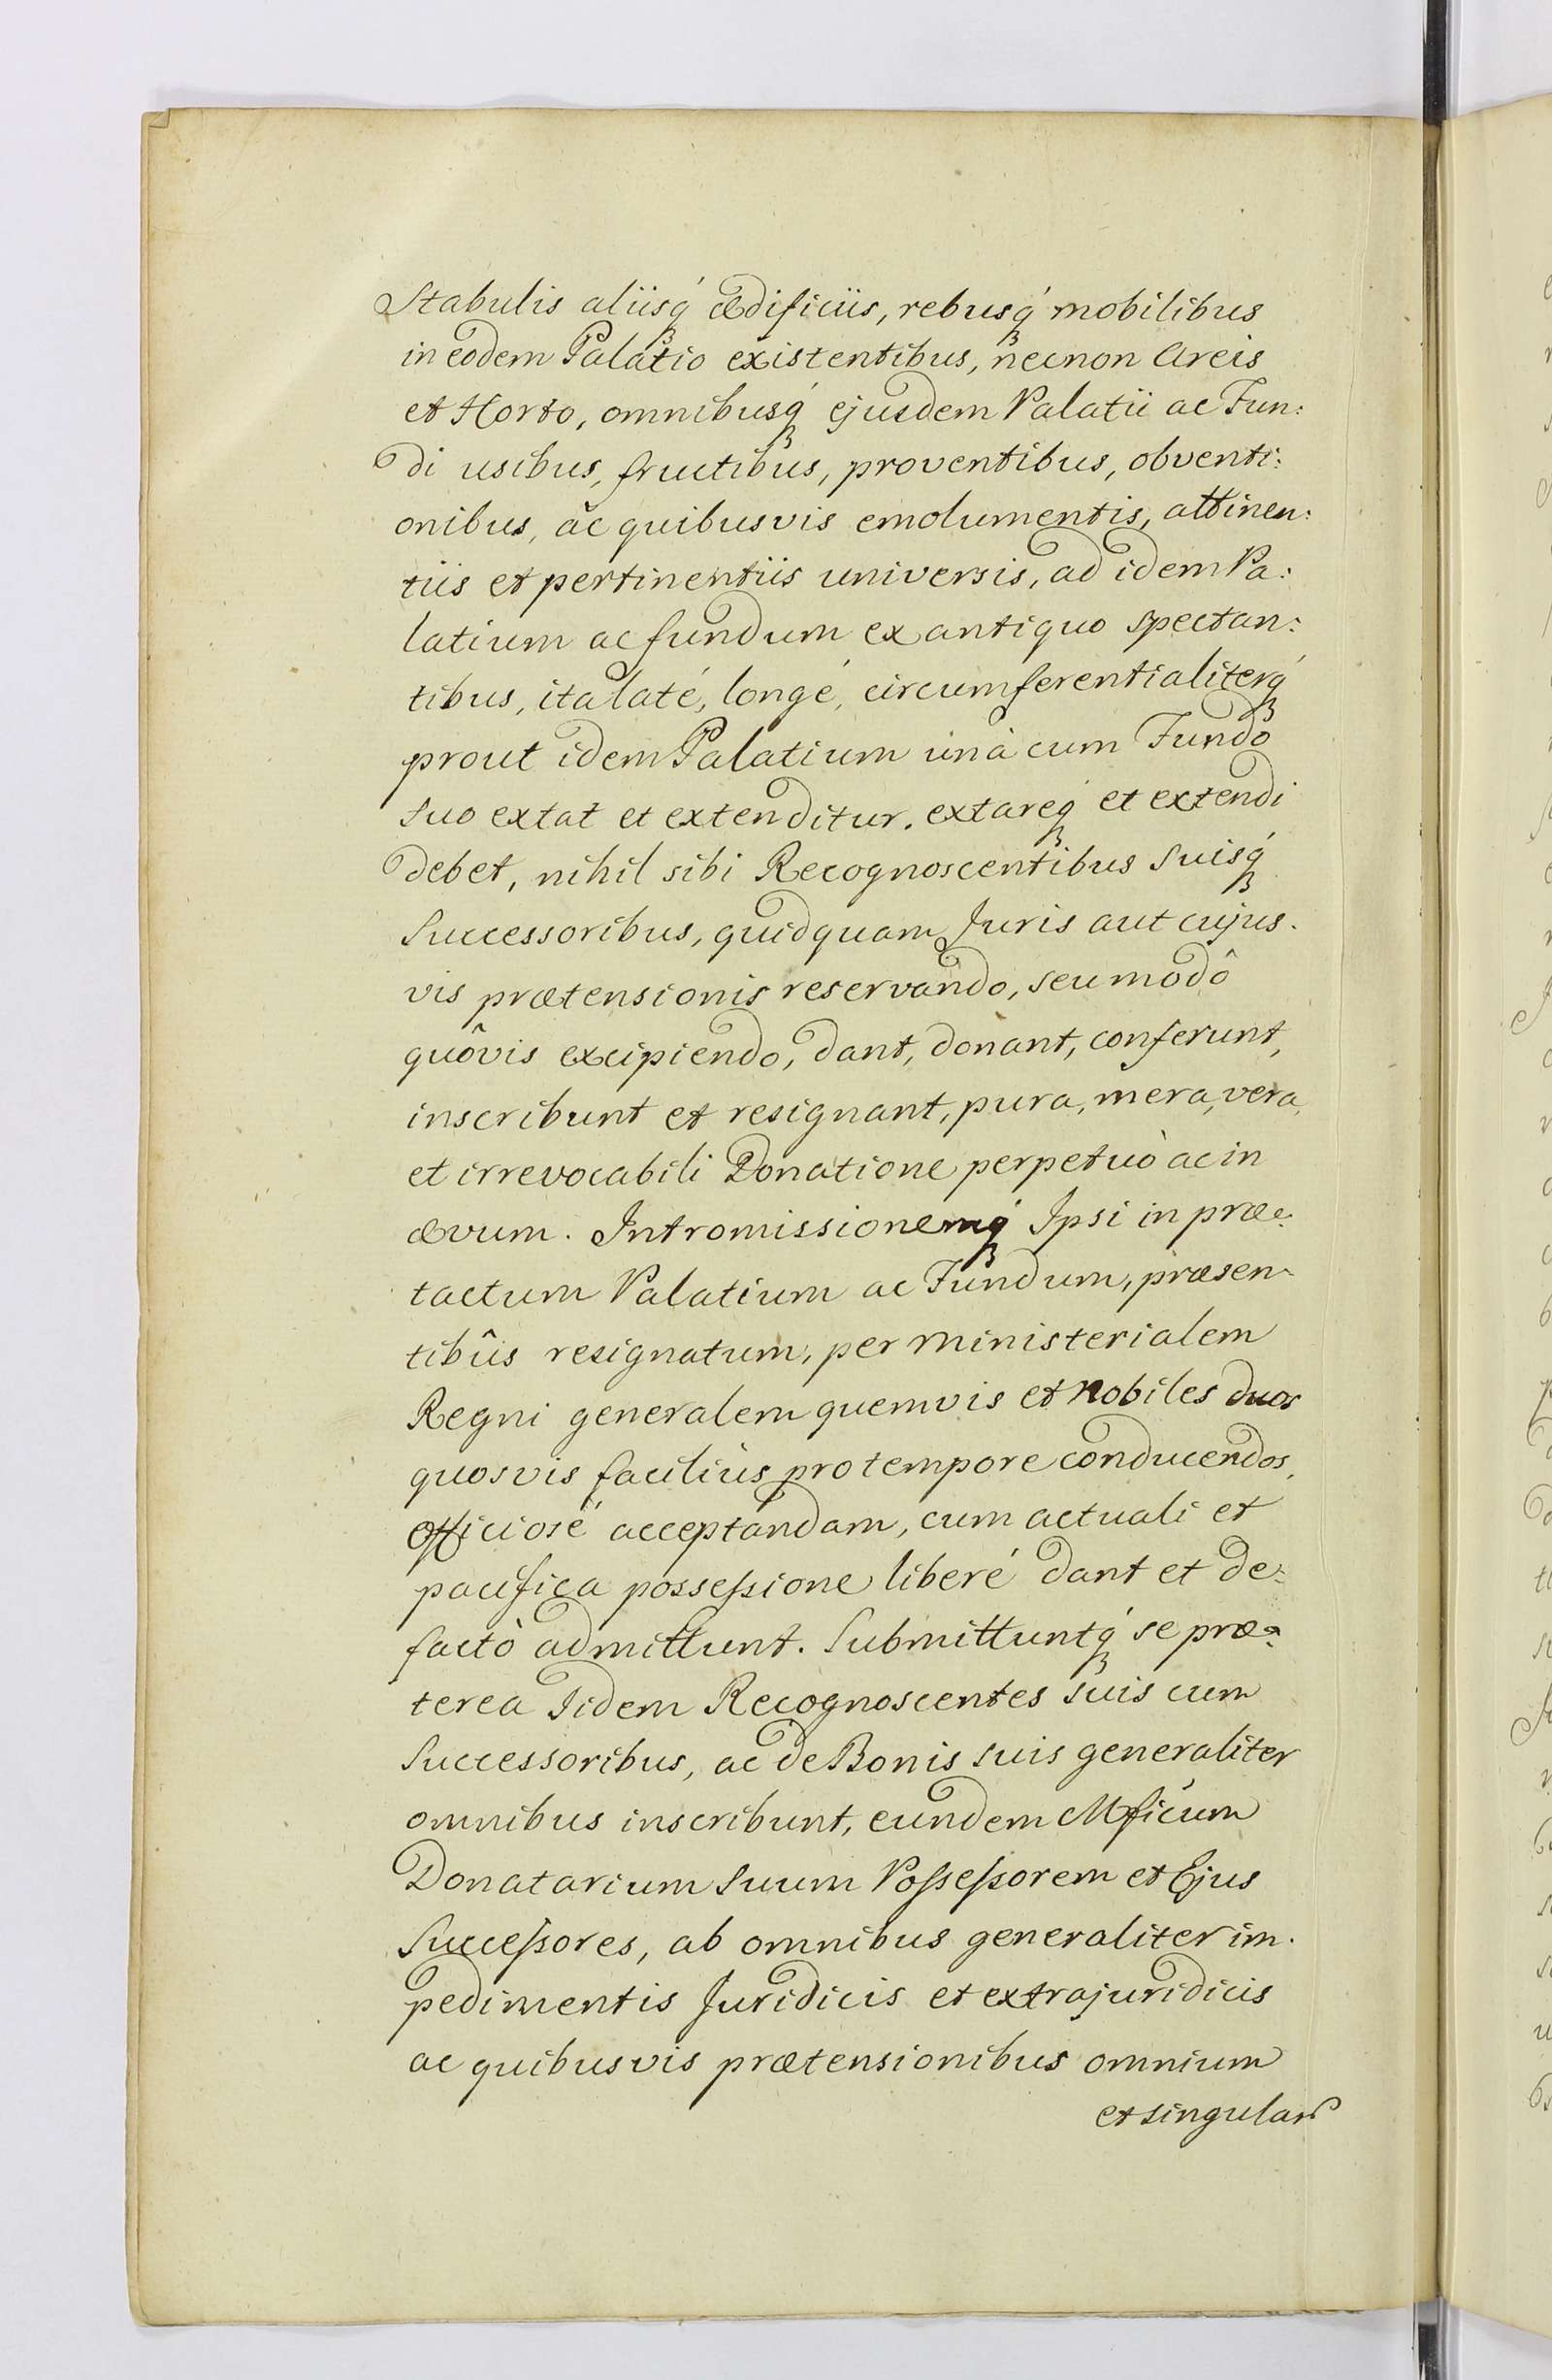 Stabulis aliisq́ ædificiis, rebusq́ mobilibus
in eodem Palatio existentibus, necnon Areis
et Horto, omnibusq́ ejusdem Palatii ac Fun:
di usibus, fructibus, proventibus, obventi:
onibus, ac quibusvis emolumentis, attinen:
tiis et pertinentiis universis, ad idem Pa:
latium ac fundum ex antiquo spectan:
tibus, ita laté, longé, circumferentialiterq́
prout idem Palatium unà cum Fundo
suo extat et extenditur. extareq́ et extendi
debet, nihil sibi Recognoscentibus Suisq́
Successoribus, quidquam Juris aut cujus.
vis prætensionis reservando, seu modô
quôvis excipiendo, dant, donant, conferunt,
inscribunt et resignant, pura, mera, vera,
et irrevocabili Donatione perpetuò ac in
ævum. Intromissionemq́ Ipsi in præe:
tactum Palatium ac Fundum, præsen-
tibûs resignatum, per Ministerialem
Regni generalem quemvis et Nobiles duos
quosvis faciliùs pro tempore conducendos,
officiosé acceptandam, cum actuali et
pacifica possessione liberé dant et de:
factò admittunt. Submittuntq́ se præ:
terea Iidem Recognoscentes Suis cum
Successoribus, ac de Bonis suis generaliter
omnibus inscribunt, eundem Mficum
Donatarium Suum Possessorem et Ejus
Successores, ab omnibus generaliter im.
pedimentis Juridicis et extrajuridicis
ac quibusvis prætensionibus omnium
et singular